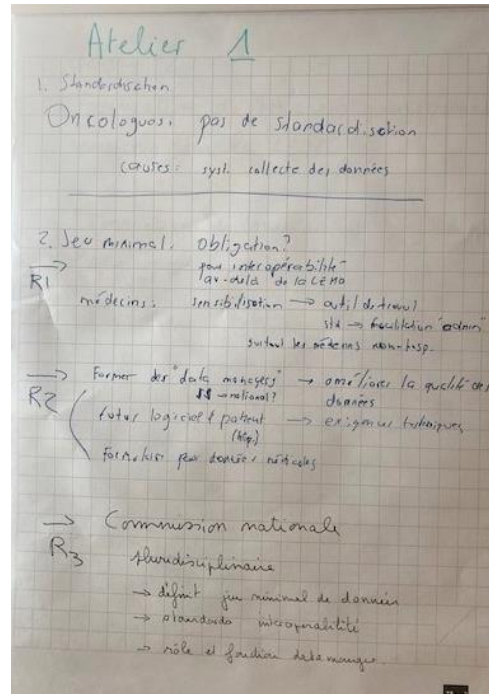 Atelier 1
1. Standardisation
Oncologues: pas de standardisation
causes: syst. collecte des données
2. Jeu minimal: obligation?
pour interopérabilité
au-delà de la
R1
médecins: sensibilisation → outil de travail
std → facilitation "admin"
surtout les médecins non-hosp.
→ Former des "data managers" → améliorer la qualité des
R2
→ national? données
futur logiciel patient → exigences techniques
(hôp.)
pour données médicales
→ Commission nationale
R3
pluridisciplinaire
→ définit jeu minimal de données
→ standards interoperabilité
→ rôle et fonction data manager